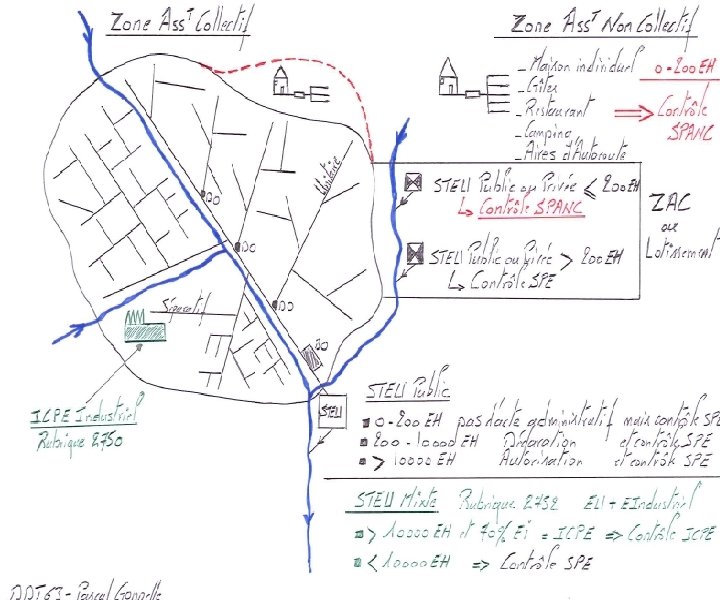 Zone Assᵗ Collectif
Zone Assᵗ Non Collectif
- Maison individuel
- Gîtes
- Restaurant
- Camping
- Aires d'Autoroute
0-200 EH
Contrôle
SPANC
STEU Public ou Privée ≤ 200EH
↳ Contrôle SPANC
STEU Public ou Privé > 200 EH
↳ Contrôle SPE
ZAC
ou
Lotissement
Unitaire
DO
DO
DO
DO
Séparatif
ICPE Industriel
Rubrique 2750
STEU
STEU Public
0-200 EH pas d'acte administratif mais contrôle SPE
200-10000 EH Déclaration et contrôle SPE
> 10000 EH Autorisation et contrôle SPE
STEU Mixte Rubrique 2752 EU + EIndustriel
> 10000 EH et 70% Ei = ICPE => Contrôle ICPE
< 10000 EH => Contrôle SPE
DDT63 - Pascal